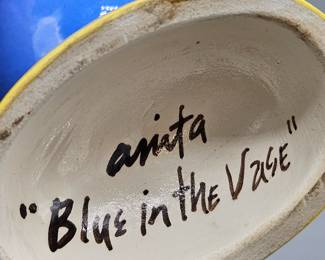 anita
"Blue in the Vase"